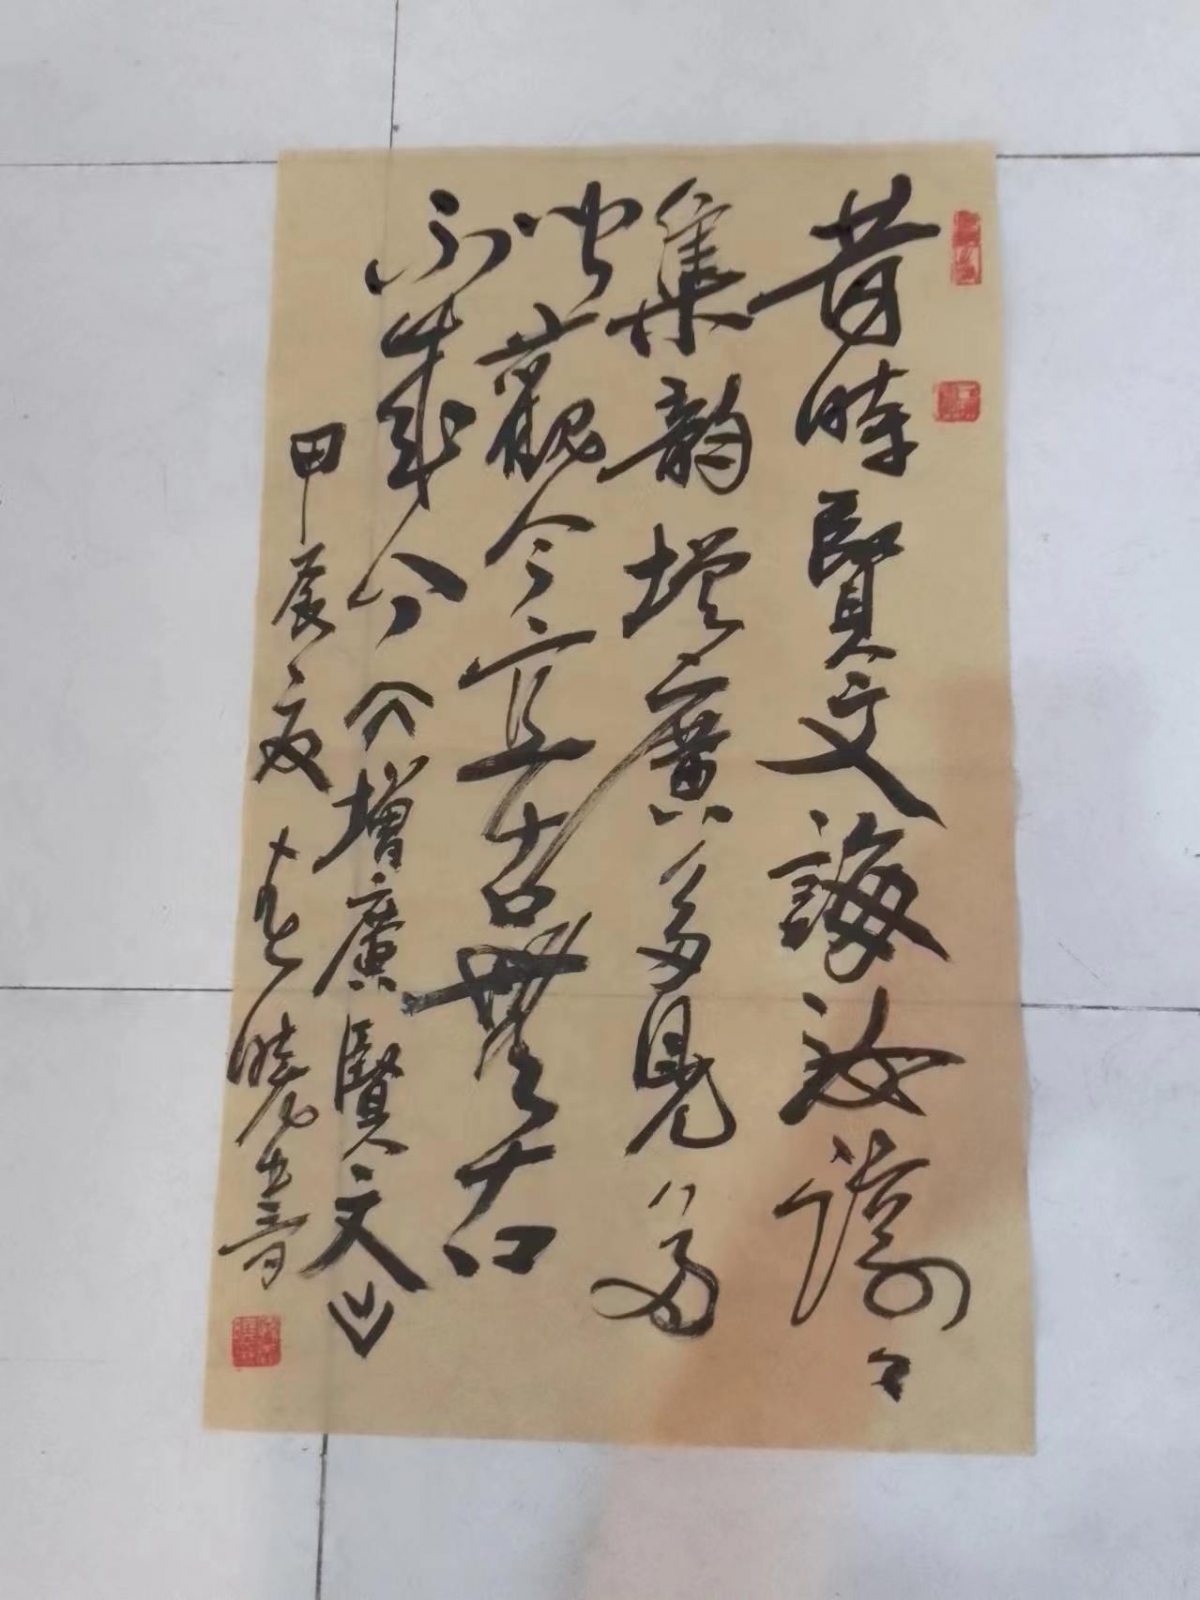 昔時賢文誨汝諄々
集韻增廣多見多
聞觀今宜古無古
不成今《增廣賢文》
甲辰夏 曉書